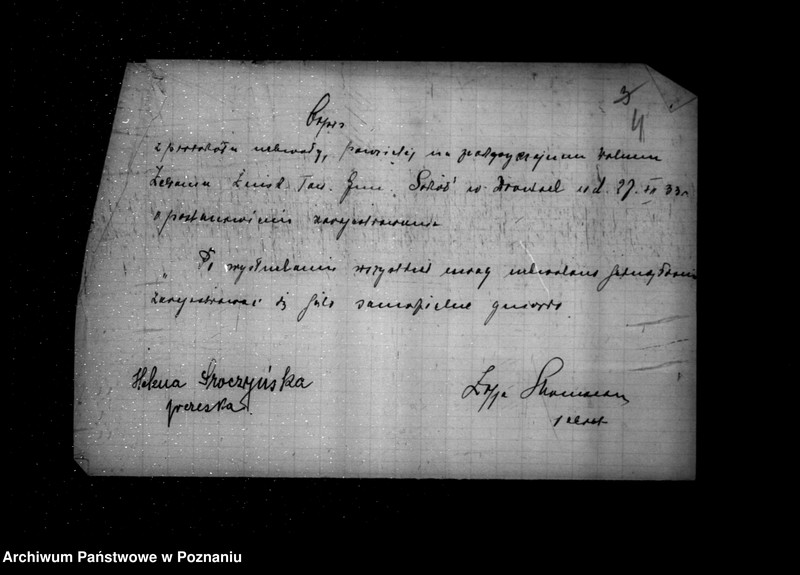 3
4
Odpis
z protokołu uchwały, powziętej na nadzwyczajnem walnem
Zebraniu Żeńsk. Tow. Gim. "Sokół" w d. 27. 33 r.
o postanowieniu zarejestrowania
"Po wysłuchaniu wszystkich uwag uchwalono jednogłośnie
zarejestrować się jako samodzielne gniazdo.
Helena Sroczyńska
prezeska.
Zofja
Archiwum Państwowe w Poznaniu